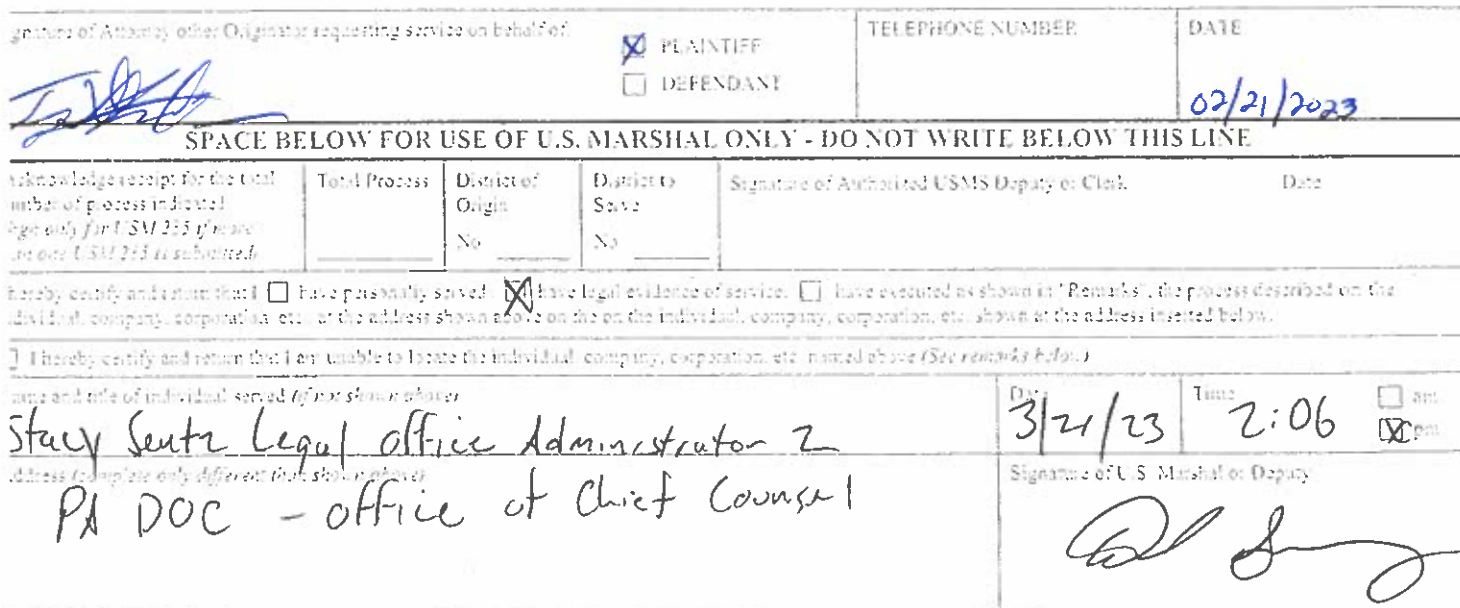 gnature of Attorney other Originator requesting service on behalf of:
PLAINTIFF
DEFENDANT
TELEPHONE NUMBER
DATE
02/21/2023
SPACE BELOW FOR USE OF U.S. MARSHAL ONLY - DO NOT WRITE BELOW THIS LINE
acknowledge receipt for the total
umber of process indicated.
only for USM 285 if more
an one USM 285 is submitted)
Total Process
District of
Origin
No
District to
Serve
No
Signature of Authorized USMS Deputy or Clerk
Date
hereby certify and return that I have personally served, have legal evidence of service, have executed as shown in "Remarks", the process described on the
dividual, company, corporation, etc., at the address shown above on the on the individual, company, corporation, etc. shown at the address inserted below.
I hereby certify and return that I am unable to locate the individual, company, corporation, etc. named above (See remarks below)
ame and title of individual served (if not shown above)
Stacy Legal office Administrator 2
Date
3/21/23
Time
2:06
am
pm
ddress (complete only different than shown above)
PA DOC - office of Chief Counsel
Signature of U.S. Marshal or Deputy